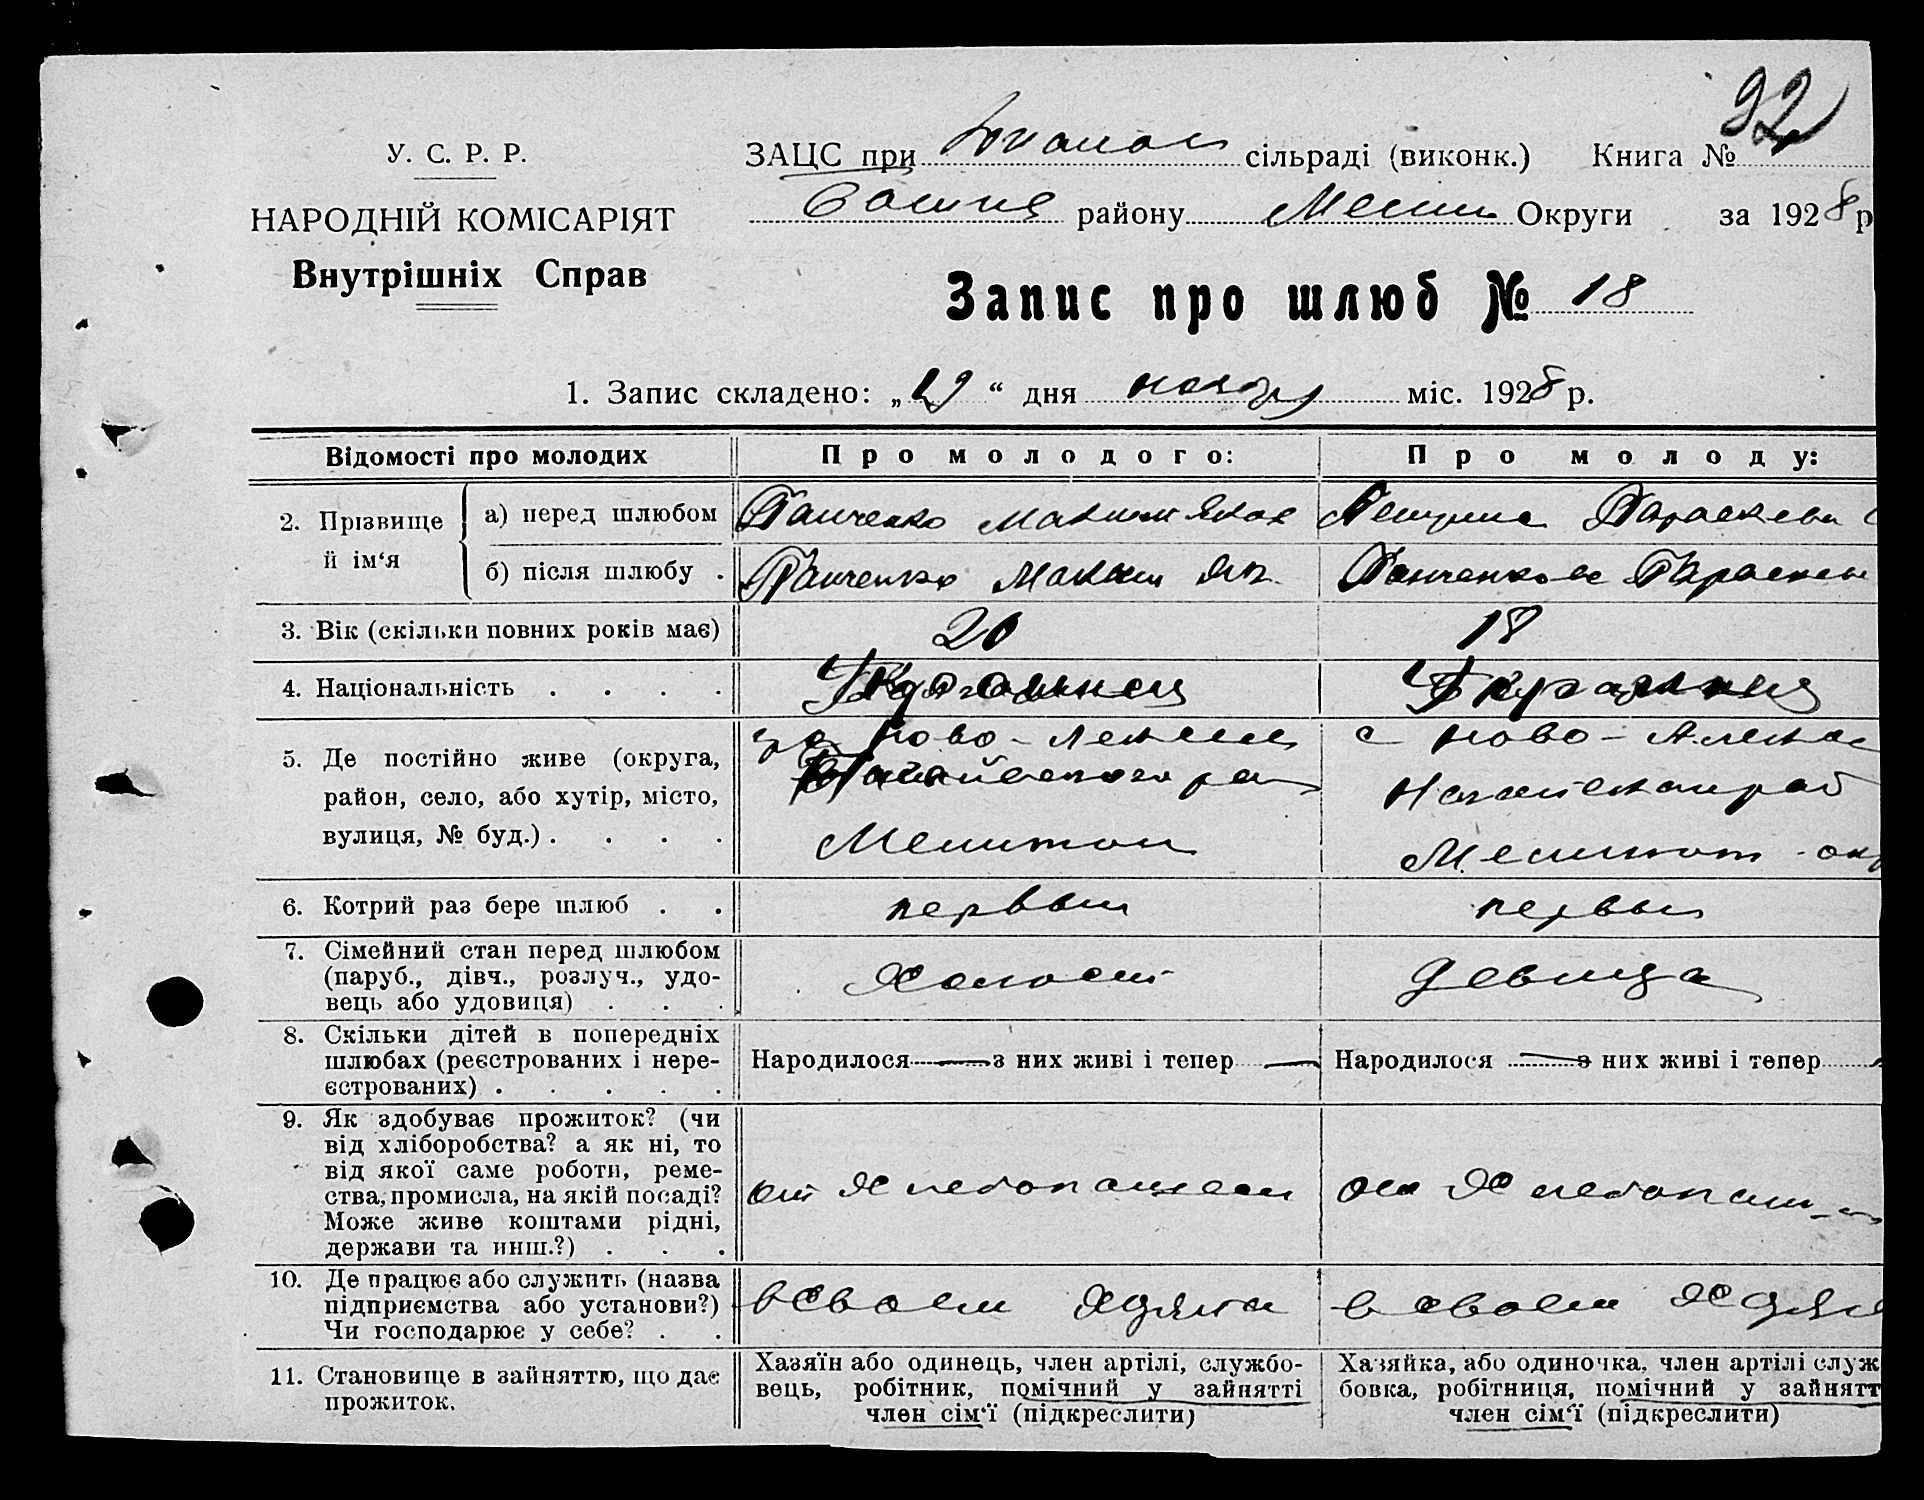 92
У. С. Р. Р.
НАРОДНІЙ КОМІСАРІЯТ
Внутрішніх Справ
ЗАЦС при сільраді (виконк.) Книга №
району Округи за 1928 р
Запис про шлюб № 18
1. Запис складено: „29“ дня ноября міс. 1928 р.
Відомості про молодих Про молодого: Про молоду:
2. Прізвище й ім‘я а) перед шлюбом Панченко Максим Параскева
б) після шлюбу . Панченко Максим Як. Панченкове Параскев
3. Вік (скільки повних років має) 20 18
4. Національність . . . . Украинец Украинец
5. Де постійно живе (округа, Ново- с Ново-Алекса
район, село, або хутір, місто,
вулиця, № буд.) . . . . Мелитоп Мелитоп окр
6. Котрий раз бере шлюб . . первый первый
7. Сімейний стан перед шлюбом
(паруб., дівч., розлуч., удо- Холост Девица
вець або удовиця) . . .
8. Скільки дітей в попередніх
шлюбах (реєстрованих і нере- Народилося — з них живі і тепер — Народилося — з них живі і тепер
єстрованих) . . . . .
9. Як здобуває прожиток? (чи
від хліборобства? а як ні, то
від якої саме роботи, реме-
ства, промисла, на якій посаді? от Хлебопашест от Хлебопаш
Може живе коштами рідні,
держави та инш.?) . . .
10. Де працює або служить (назва
підприємства або установи?) в своем в своем
Чи господарює у себе? . .
11. Становище в зайняттю, що дає
прожиток.
Хазяїн або одинець, член артілі, службо-
вець, робітник, помічний у зайнятті
член сім‘ї (підкреслити)
Хазяйка, або одиночка, член артілі служ
бовка, робітниця, помічний у зайнятт
член сім‘ї (підкреслити)